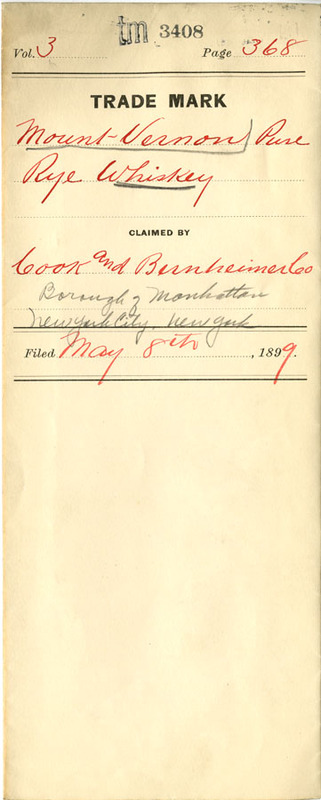 tm 3408
Vol. 3 Page 368
TRADE MARK
Mount-Vernon Pure
Rye Whiskey
CLAIMED BY
Cook and Bernheimer Co
Borough of Manhattan
New York City, New York
Filed May 8th, 1899.